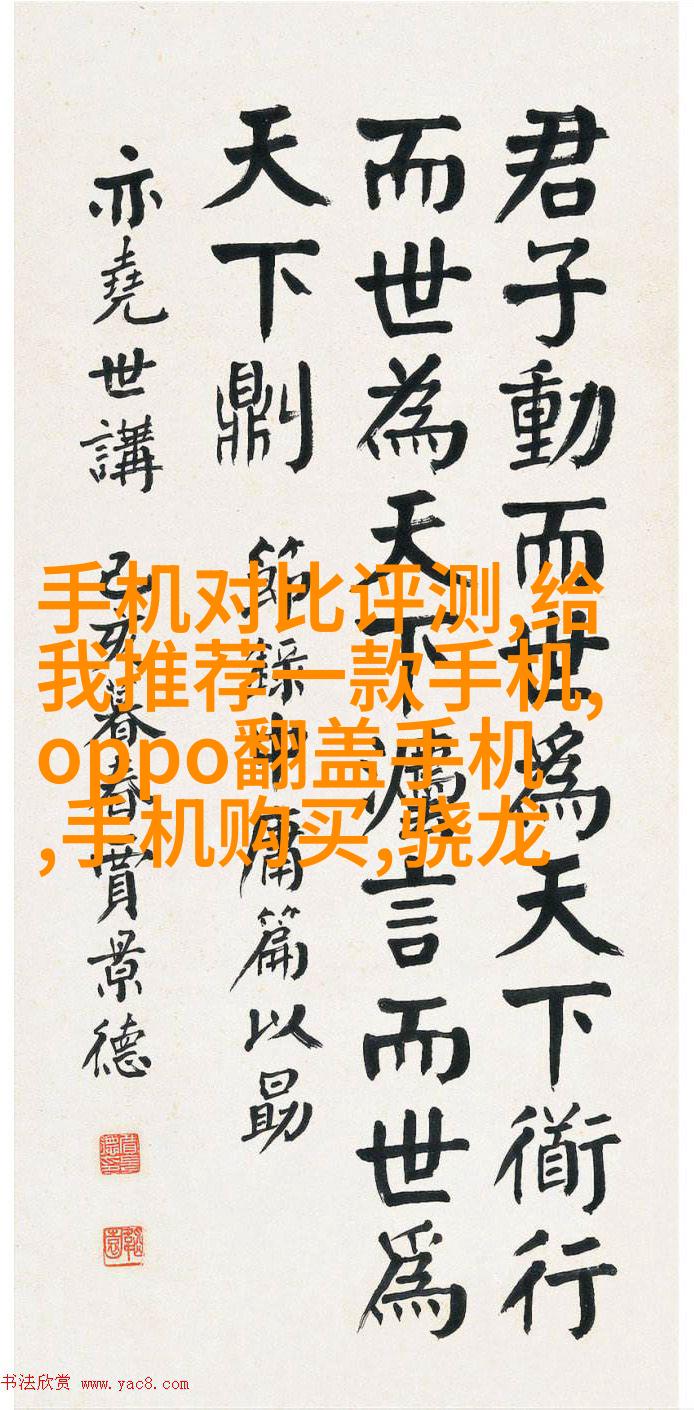 君子動而世為天下衜行
而世為天下灋言而世為
天下𠟭 節錄中庸篇以勗
亦堯世講 己亥暮春賈景德
手机对比评测,给
我推荐一款手机,
oppo翻盖手机
,手机购买,骁龙
书法欣赏 www.yac8.com